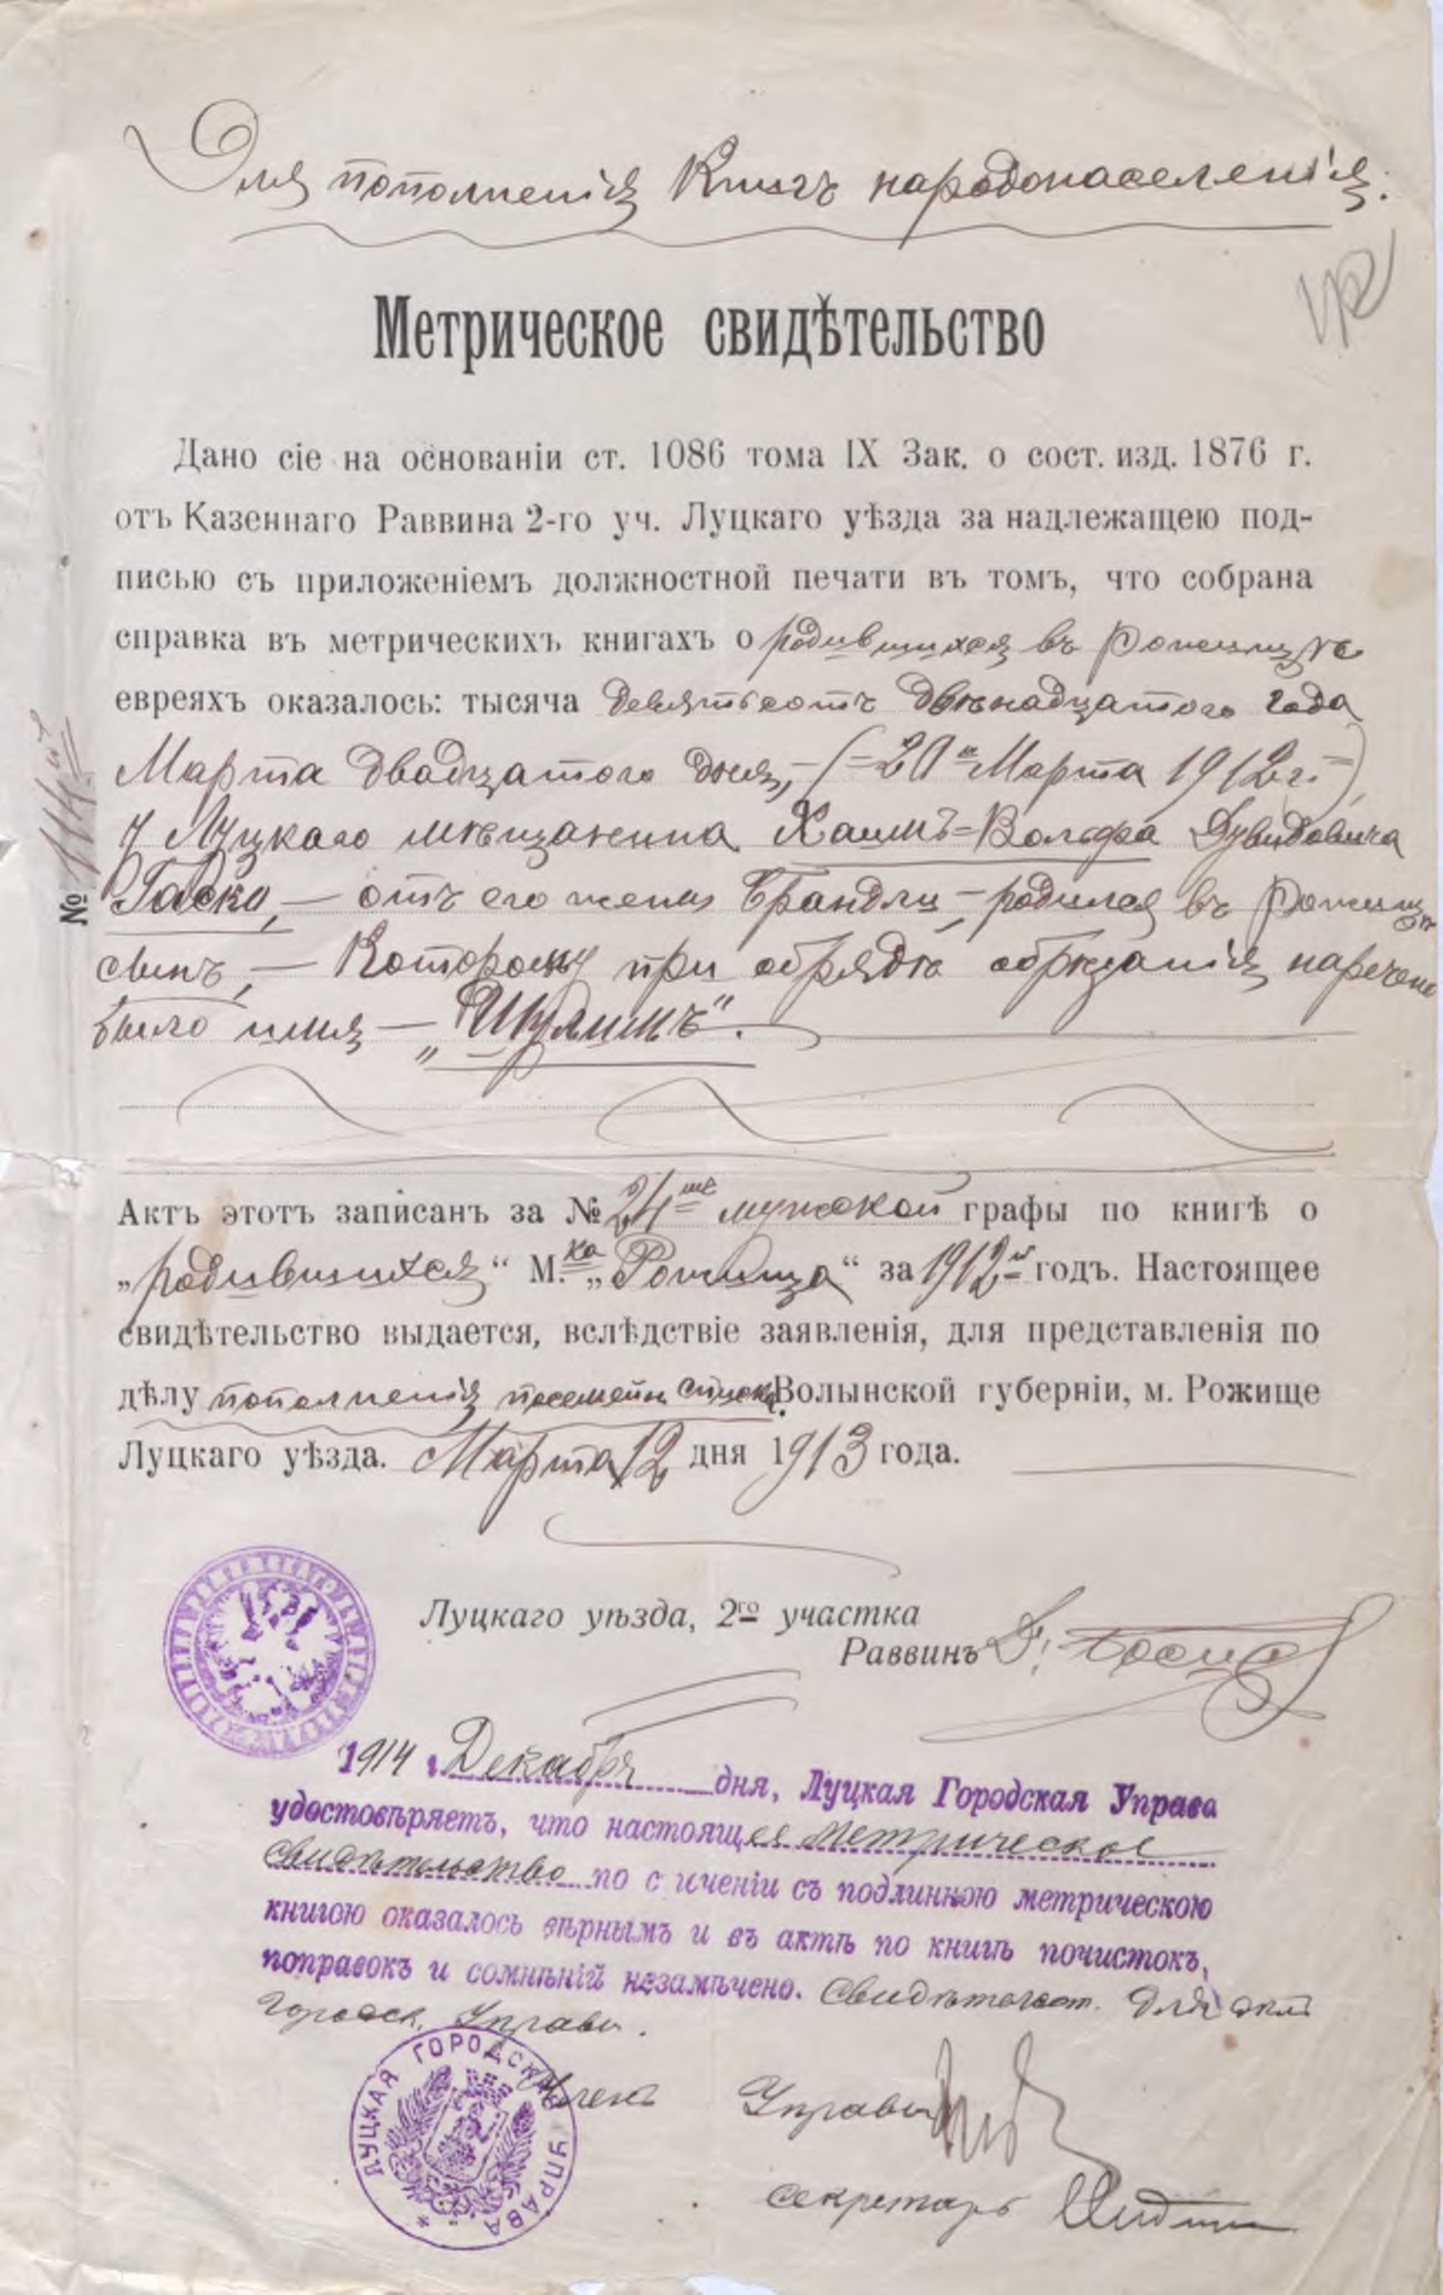 Для пополненія Книгъ народонаселенія.
Метрическое свидѣтельство
Дано сіе на основаніи ст. 1086 тома IX Зак. о сост. изд. 1876 г.
отъ Казеннаго Раввина 2-го уч. Луцкаго уѣзда за надлежащею под-
писью съ приложеніемъ должностной печати въ томъ, что собрана
справка въ метрическихъ книгахъ о родившихся въ Рожищѣ
евреяхъ оказалось: тысяча девятьсотъ двѣнадцатого года
Марта двадцатого дня, — (=20го Марта 1912 г.=)
у Луцкаго мѣщанина Хаимъ=Вольфа Дувидовича
Гаско, — отъ его жены Брандли, — родился въ Рожищѣ
сынъ, — Которому при обрядѣ обрѣзанія наречено
было имя — „Шулимъ“.
№ 114й
Актъ этотъ записанъ за № 24мъ мужской графы по книгѣ о
„родившихся“ М.ка „Рожища“ за 1912й годъ. Настоящее
свидѣтельство выдается, вслѣдствіе заявленія, для представленія по
дѣлу пополненія посемейн. списка. Волынской губерніи, м. Рожище
Луцкаго уѣзда. Марта 12 дня 1913 года.
Луцкаго уѣзда, 2го участка
Раввинъ
1914 г. Декабря дня, Луцкая Городская Управа
удостовѣряетъ, что настоящее метрическое
свидѣтельство по сличеніи съ подлинною метрическою
книгою оказалось вѣрнымъ и въ актѣ по книгѣ почистокъ,
поправокъ и сомнѣній незамѣчено. Свидѣтельст. для дѣлъ
Городск. Управы.
Членъ Управы
Секретарь
ЛУЦКАЯ ГОРОДСКАЯ УПРАВА